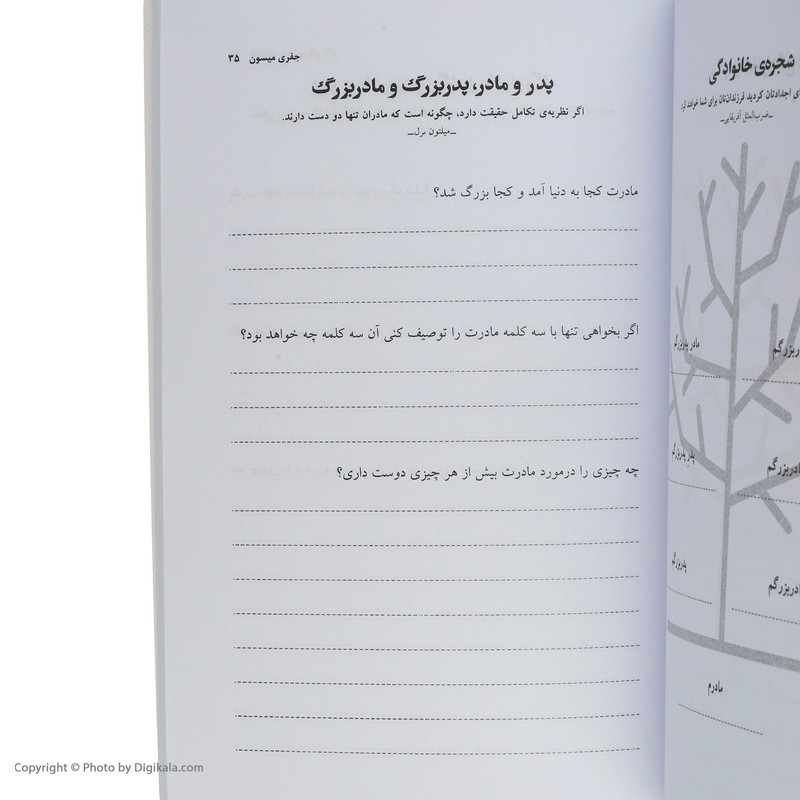 شجره‌ی خانوادگی
ای اجدادتان کردید فرزندان‌تان برای شما خواهند کرد
ـ ضرب‌المثل آفریقایی ـ
مادر پدربزرگم
دربزرگم
پدر پدربزرگم
ادربزرگم
پدربزرگم
ادربزرگم
مادرم
جفری میسون ۳۵
پدر و مادر، پدربزرگ و مادربزرگ
اگر نظریه‌ی تکامل حقیقت دارد، چگونه است که مادران تنها دو دست دارند.
ـ میلتون برل ـ
مادرت کجا به دنیا آمد و کجا بزرگ شد؟
اگر بخواهی تنها با سه کلمه مادرت را توصیف کنی آن سه کلمه چه خواهد بود؟
چه چیزی را درمورد مادرت بیش از هر چیزی دوست داری؟
Copyright © Photo by Digikala.com